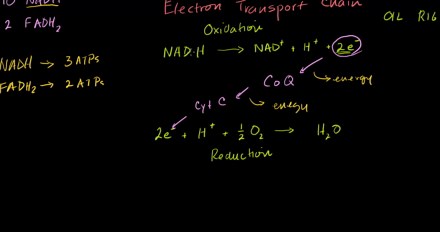 10 NADH
2 FADH₂
NADH → 3 ATPs
FADH₂ → 2 ATPs
Electron Transport Chain
OIL RIG
Oxidation
NAD·H → NAD⁺ + H⁺ + 2e⁻
CoQ → energy
Cyt C → energy
2e⁻ + H⁺ + ½ O₂ → H₂O
Reduction